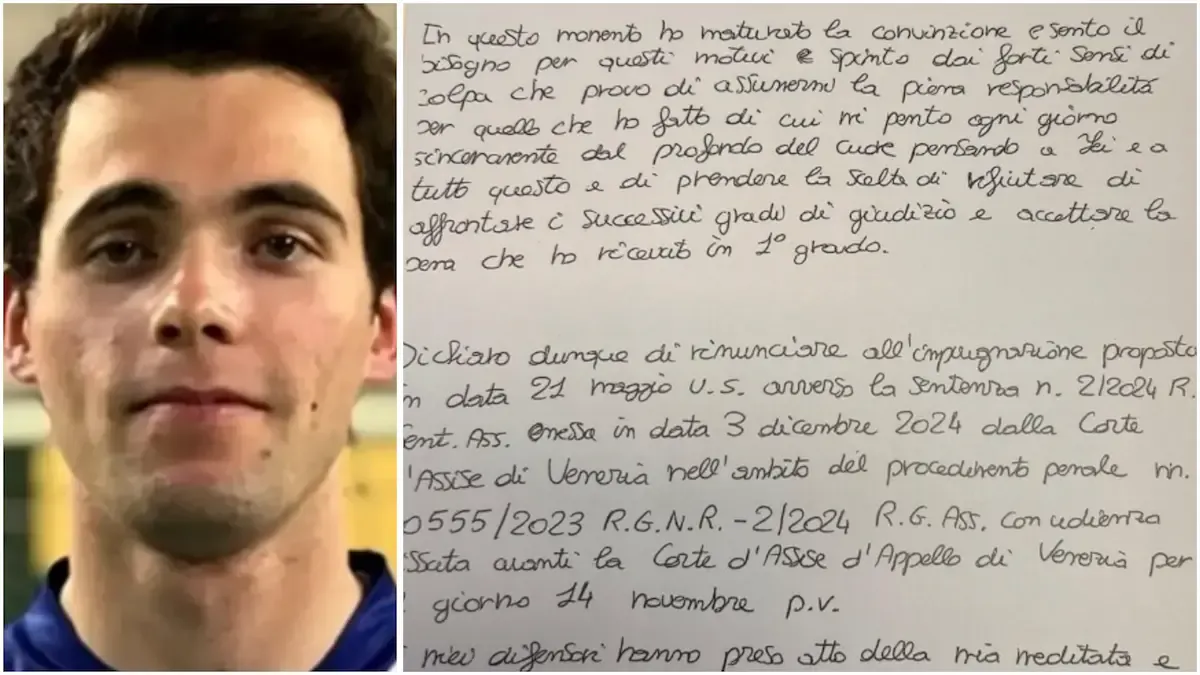 In questo momento ho maturato la convinzione e sento il
bisogno per questi motivi e spinto dai forti sensi di
colpa che provo di assumermi la piena responsabilità
per quello che ho fatto di cui mi pento ogni giorno
sinceramente dal profondo del cuore pensando a Lei e a
tutto questo e di prendere la scelta di rifiutare di
affrontare i successivi gradi di giudizio e accettare la
pena che ho ricevuto in 1° grado.
Dichiaro dunque di rinunciare all'impugnazione proposta
in data 21 maggio u.s. avverso la sentenza n. 2/2024 R.
ent. Ass. emessa in data 3 dicembre 2024 dalla Corte
d'Assise di Venezia nell'ambito del procedimento penale nn.
0555/2023 R.G.N.R. - 2/2024 R.G. Ass. con udienza
ssata avanti la Corte d'Assise d'Appello di Venezia per
giorno 14 novembre p.v.
miei difensori hanno preso atto della mia meditata e